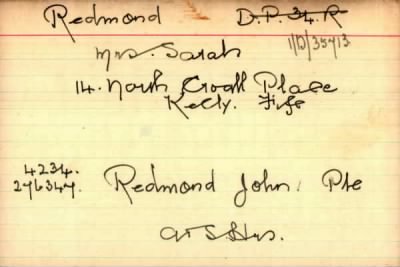 Redmond D.P. 34.R
1/D/35713
Mrs. Sarah
14. North Croall Place
Kelty. Fife
4234.
276347. Redmond John. Pte
A & S Hrs.